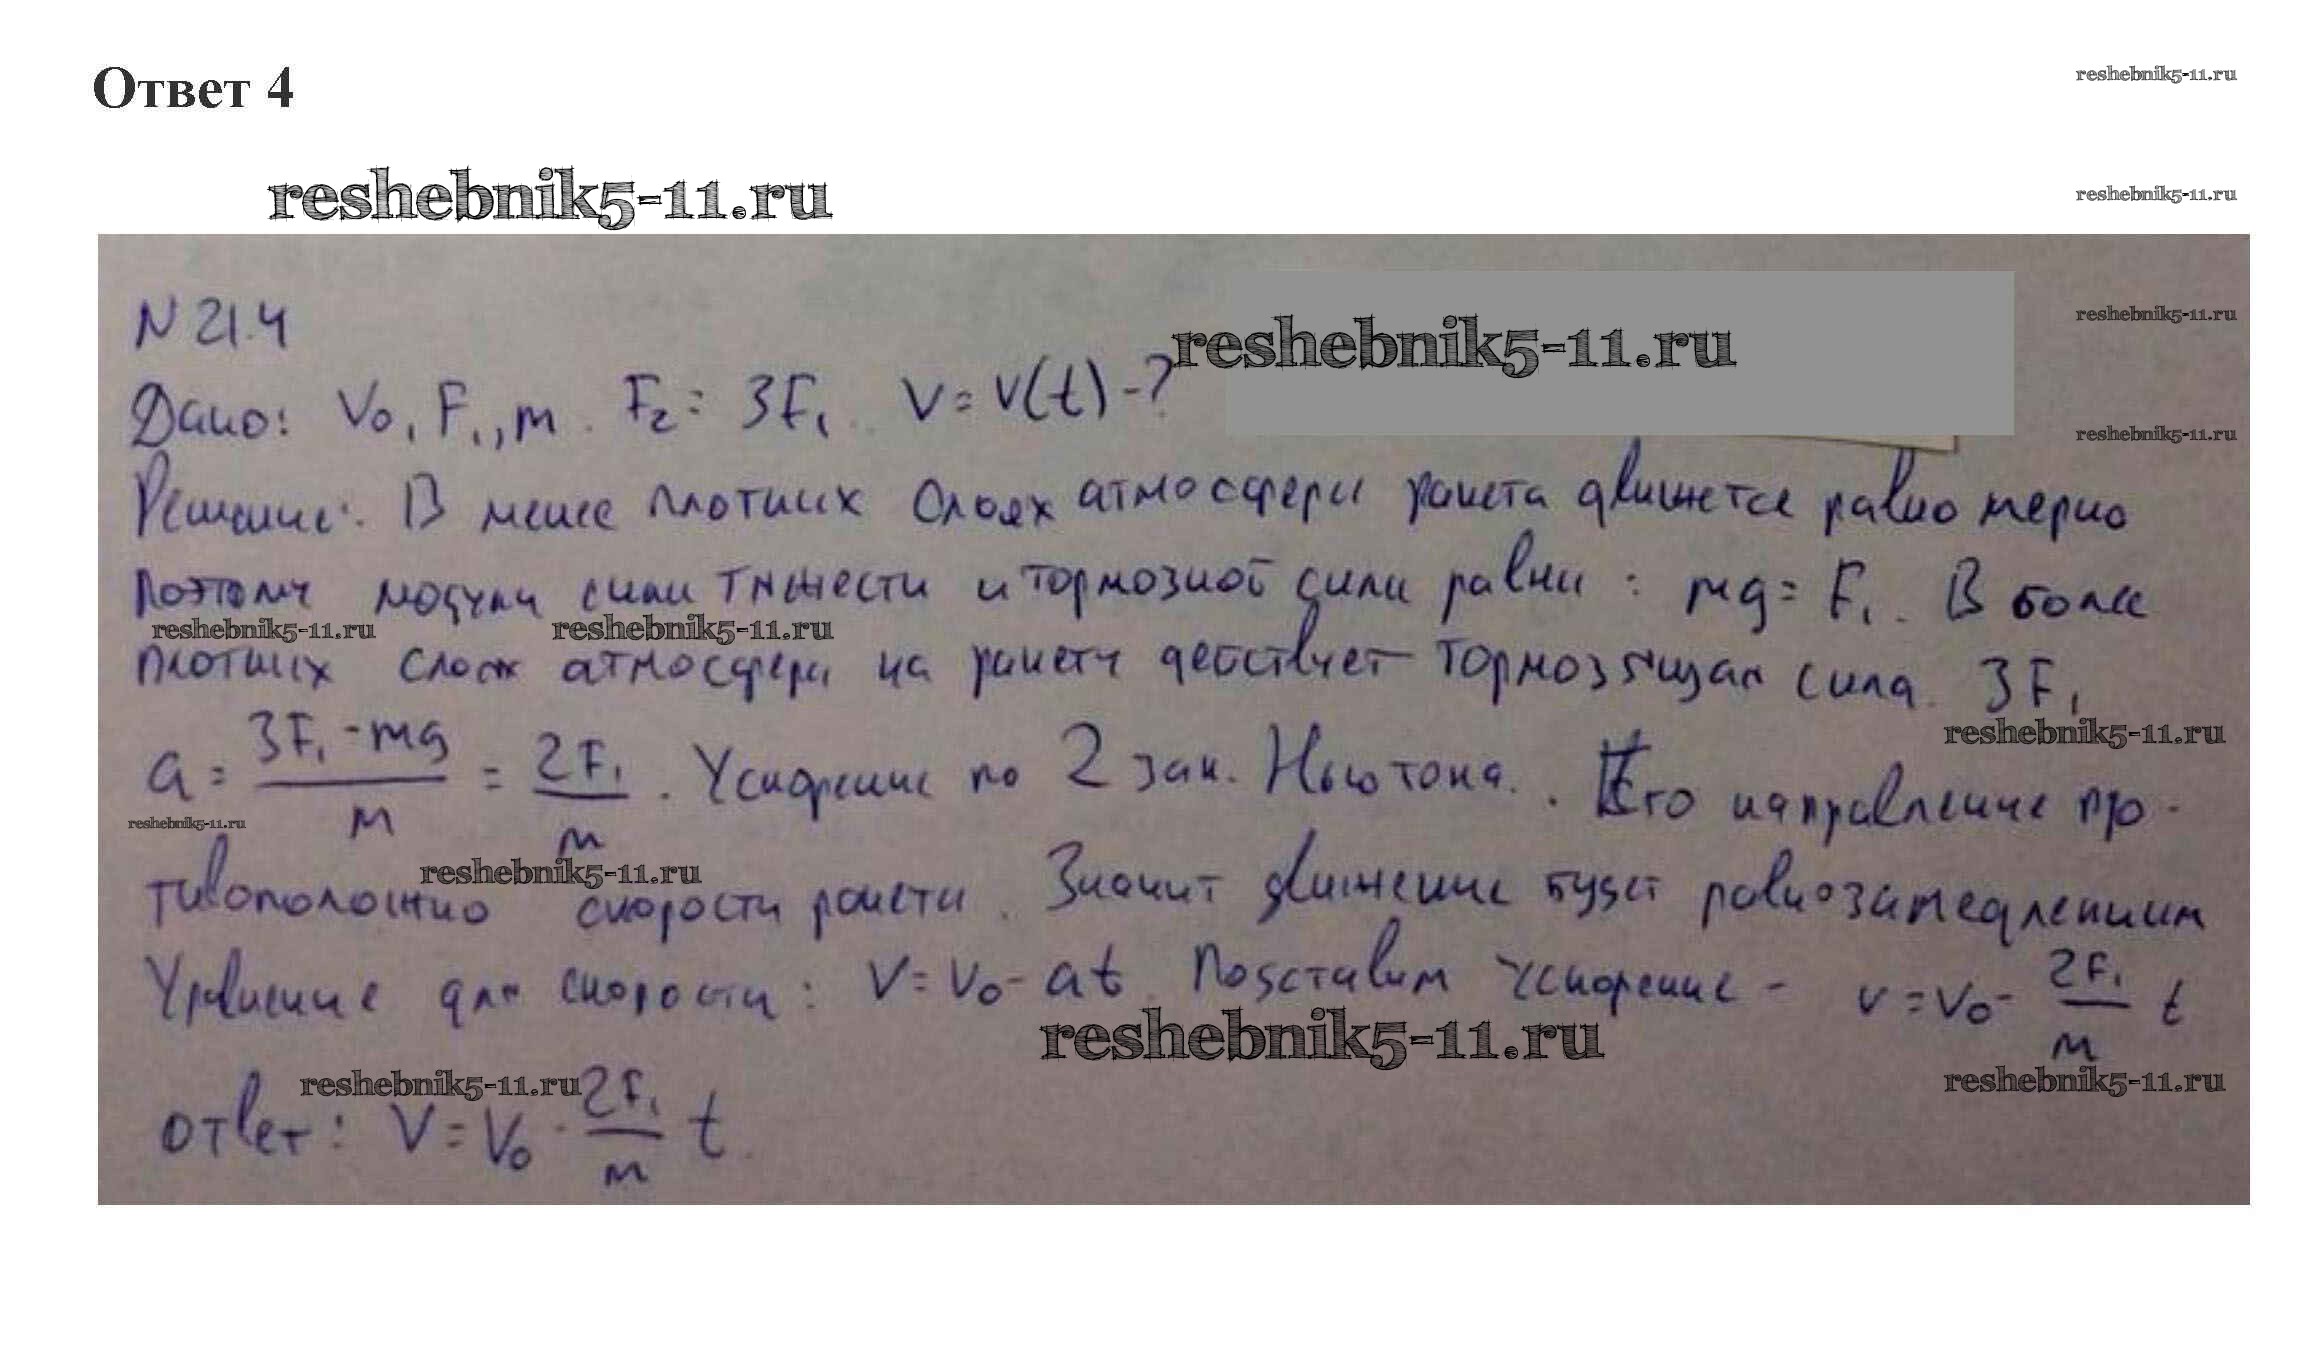 Ответ 4
reshebnik5-11.ru
reshebnik5-11.ru
reshebnik5-11.ru
N 21.4
reshebnik5-11.ru
reshebnik5-11.ru
Дано: V₀, F₁, m. F₂ = 3F₁. V = V(t) - ?
reshebnik5-11.ru
Решение: В менее плотных слоях атмосферы ракета движется равномерно
поэтому модули силы тяжести и тормозной силы равны: mg = F₁. В более
reshebnik5-11.ru reshebnik5-11.ru
плотных слоях атмосферы на ракету действует тормозящая сила 3F₁
reshebnik5-11.ru
a = (3F₁ - mg)/m = 2F₁/m. Ускорение по 2 зак. Ньютона. Его направление про-
reshebnik5-11.ru
reshebnik5-11.ru
тивоположно скорости ракеты. Значит движение будет равнозамедленным
Уравнение для скорости: V = V₀ - at. Подставим ускорение - V = V₀ - 2F₁/m t
reshebnik5-11.ru
reshebnik5-11.ru
reshebnik5-11.ru
ответ: V = V₀ - 2F₁/m t.